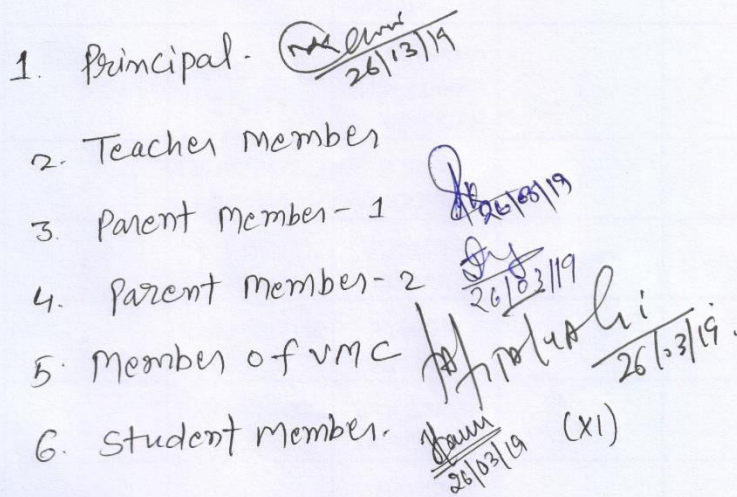 1. Principal. 26/13/19
2. Teacher Member
3. Parent Member - 1 26/03/19
4. Parent Member - 2 26/03/19
5. Member of VMC 26/03/19.
6. Student Member. 26/03/19 (XI)